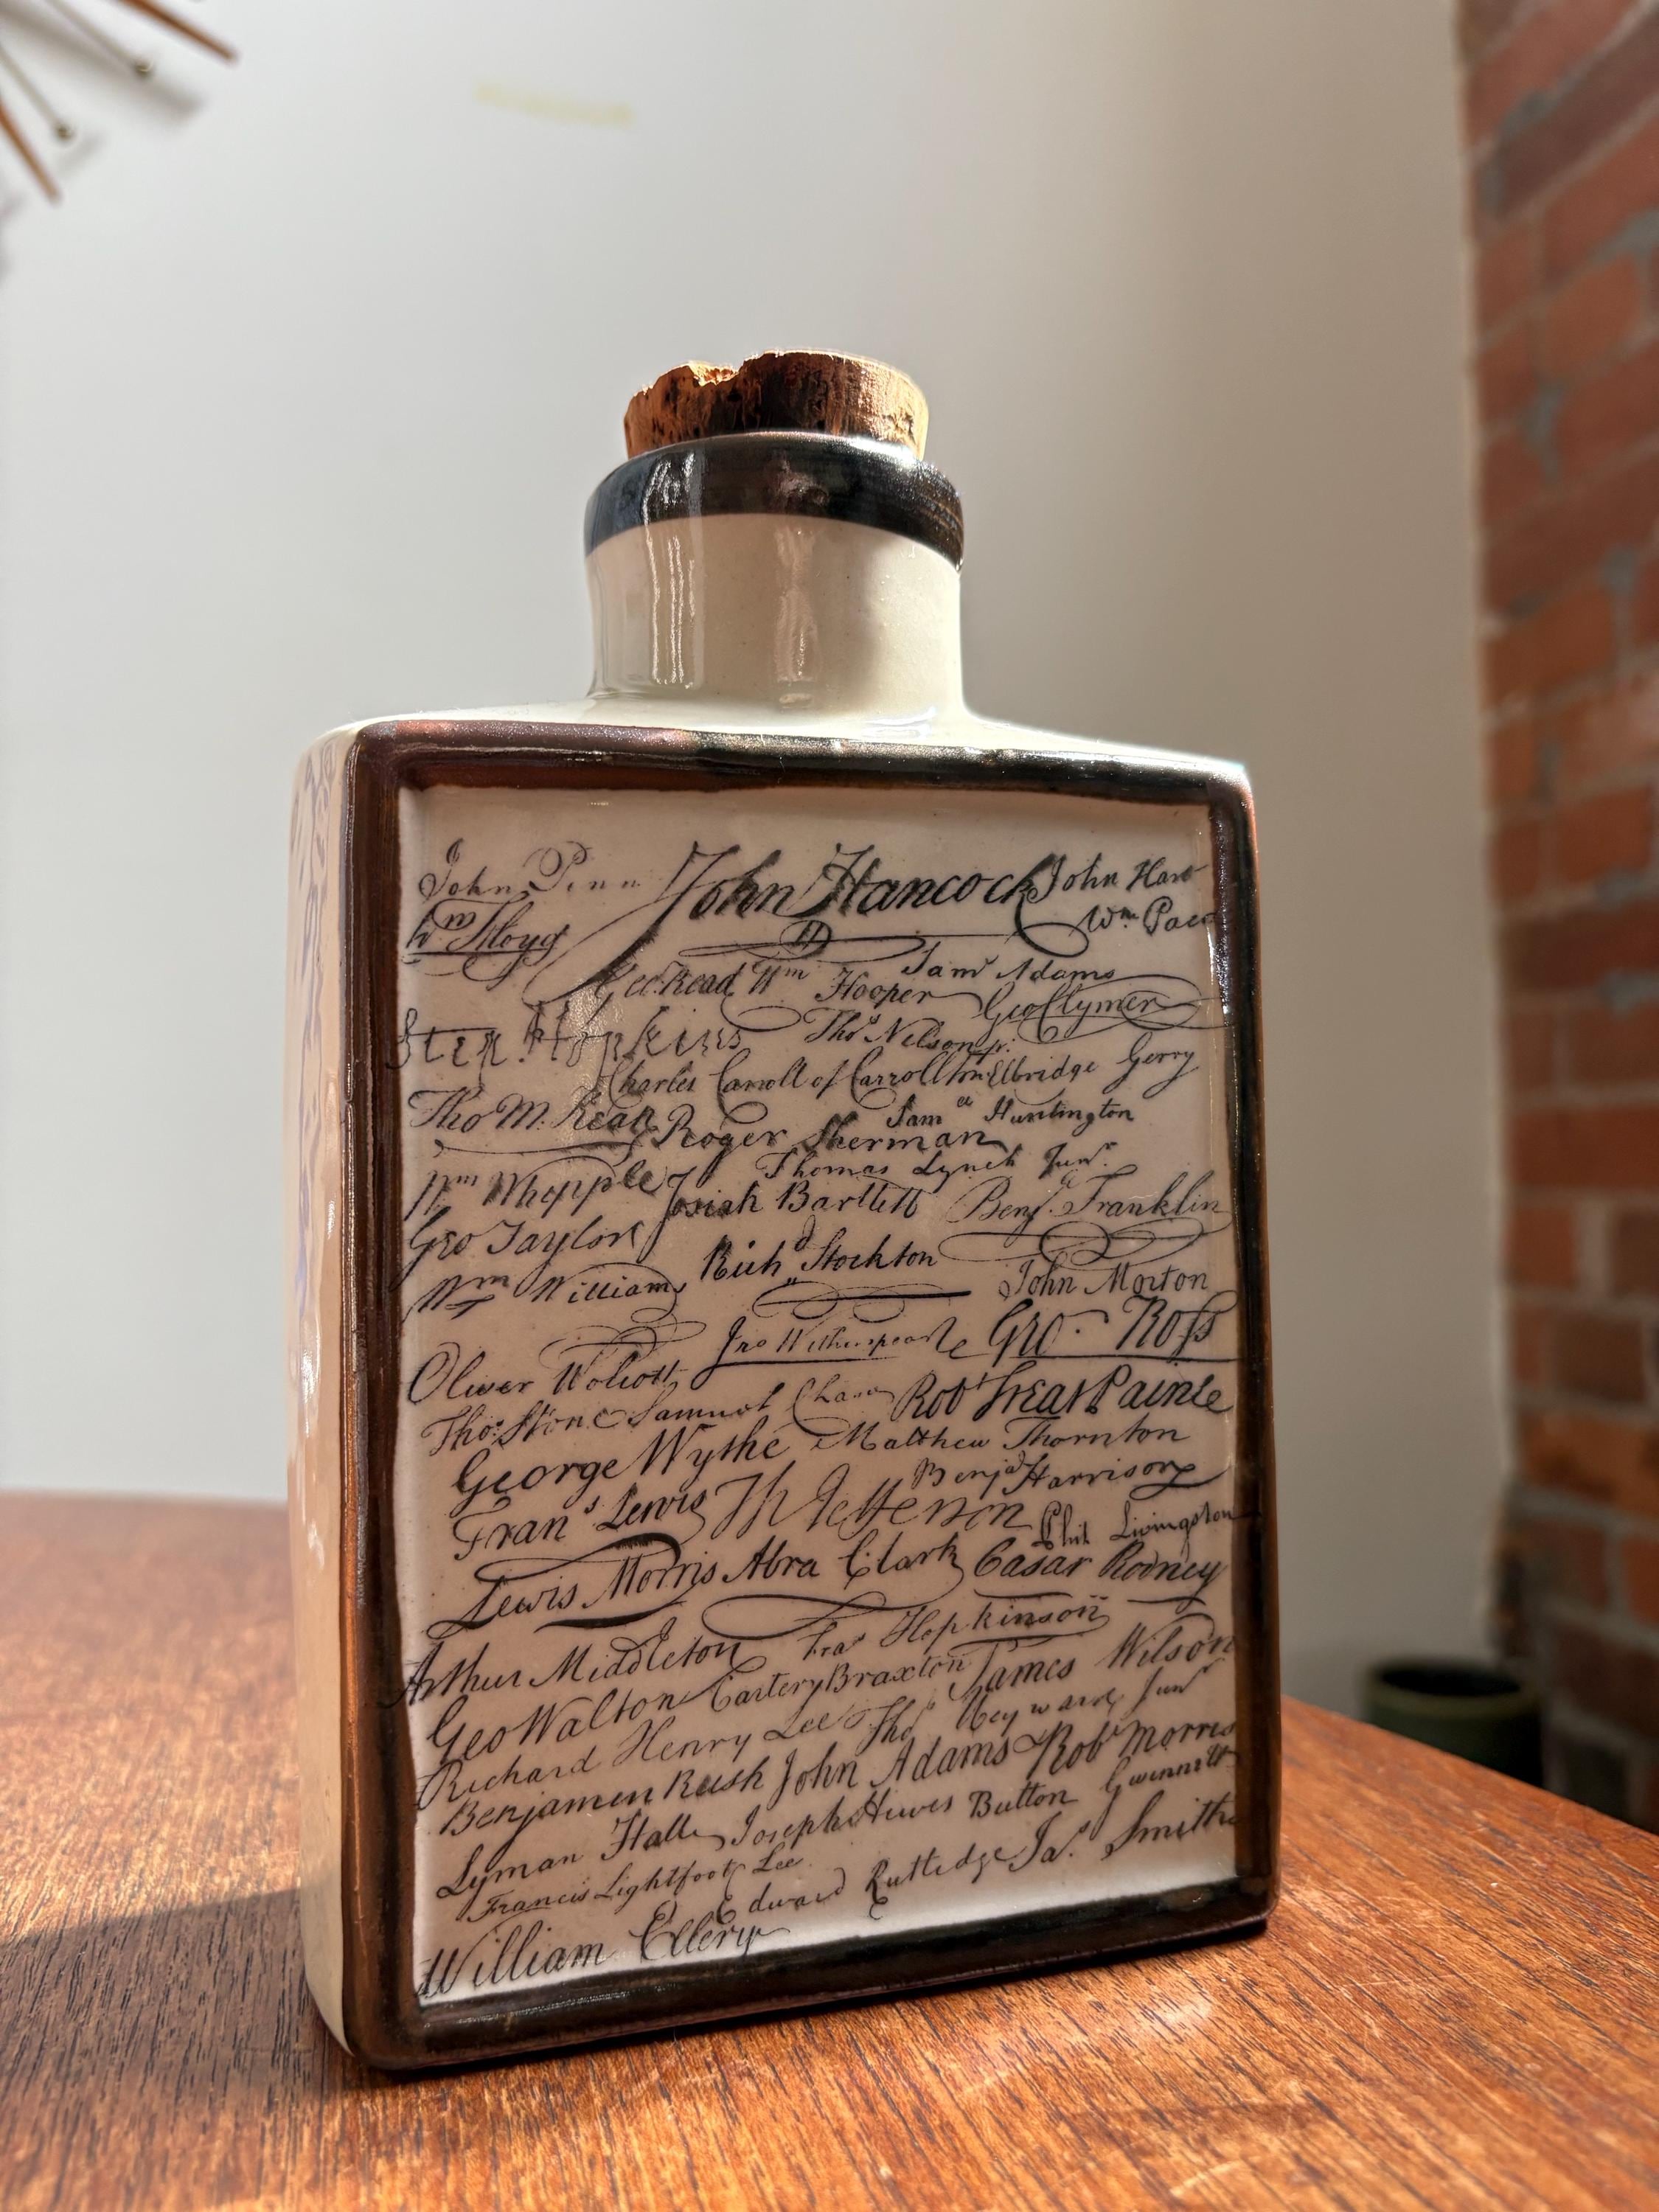 John Penn John Hancock John Hart
Wm Floyd Wm Paca
Geo Read Wm Hooper Saml Adams
Geo Clymer
Step. Hopkins Thos Nelson jr.
Charles Carroll of Carrollton Elbridge Gerry
Tho M. Kean Roger Sherman Saml Huntington
Thomas Lynch Junr.
Wm Whipple Josiah Bartlett Benj. Franklin
Geo Taylor
Richd Stockton
Wm Williams John Morton
Jno Witherspoon Geo. Ross
Oliver Wolcott
Thos Stone Samuel Chase Robt Treat Paine
George Wythe Matthew Thornton
Frans Lewis Th Jefferson Benja Harrison
Phil Livingston
Lewis Morris Abra Clark Casar Rodney
Arthur Middleton Fras Hopkinson
Geo Walton Carter Braxton James Wilson
Richard Henry Lee Thos Heyward Junr
Benjamin Rush John Adams Robt Morris
Lyman Hall Joseph Hewes Button Gwinnett
Francis Lightfoot Lee
Edward Rutledge Jas. Smith
William Ellery